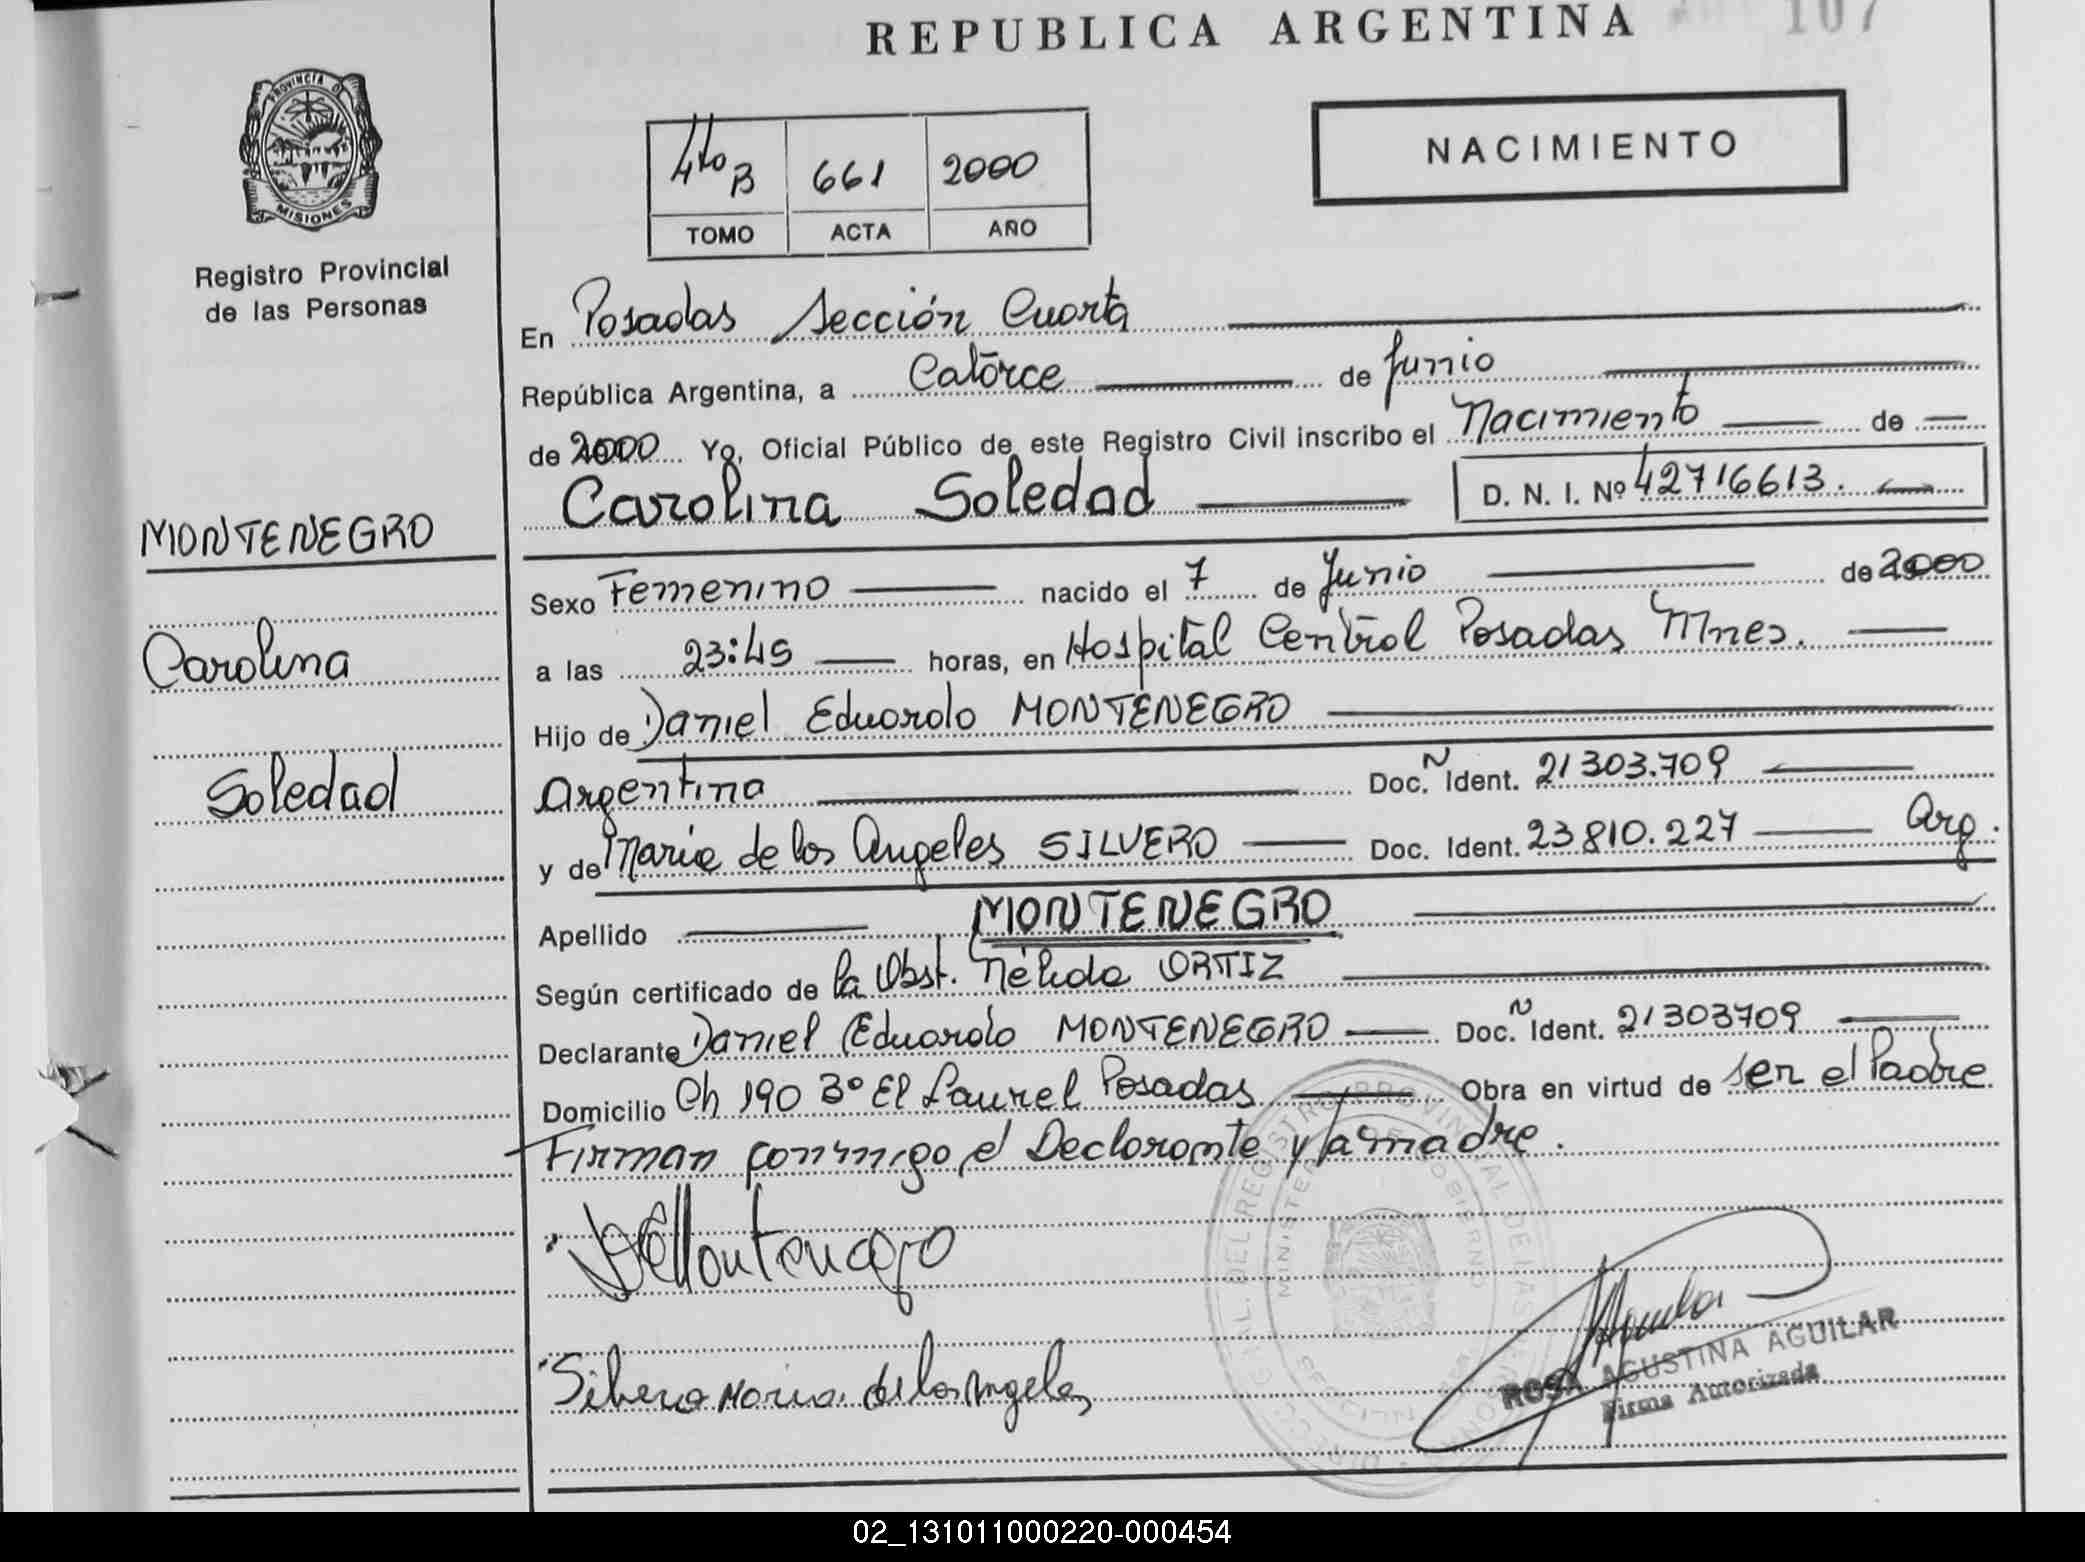 REPUBLICA ARGENTINA
107
PROVINCIA DE
MISIONES
Registro Provincial
de las Personas
4to B 661 2000
TOMO ACTA AÑO
NACIMIENTO
En Posadas Sección Cuarta
República Argentina, a Catorce de Junio
de 2000 Yo, Oficial Público de este Registro Civil inscribo el Nacimiento de
Carolina Soledad D. N. I. Nº 42716613.
MONTENEGRO
Carolina
Soledad
Sexo Femenino nacido el 7 de Junio de 2000
a las 23:45 horas, en Hospital Central Posadas Mnes.
Hijo de Daniel Eduardo MONTENEGRO
Argentina Doc. N Ident. 21303.709
y de Maria de los Angeles SILVERO Doc. Ident. 23810.227 Arg.
Apellido MONTENEGRO
Según certificado de la Obst. Nélida ORTIZ
Declarante Daniel Eduardo MONTENEGRO Doc. N Ident. 21303709
Domicilio Ch 190 Bº El Laurel Posadas Obra en virtud de ser el Padre
Firman conmigo el Declarante y la madre.
DEMontenegro
Silvero Maria de los Angeles
ROSA AGUSTINA AGUILAR
Firma Autorizada
02_131011000220-000454